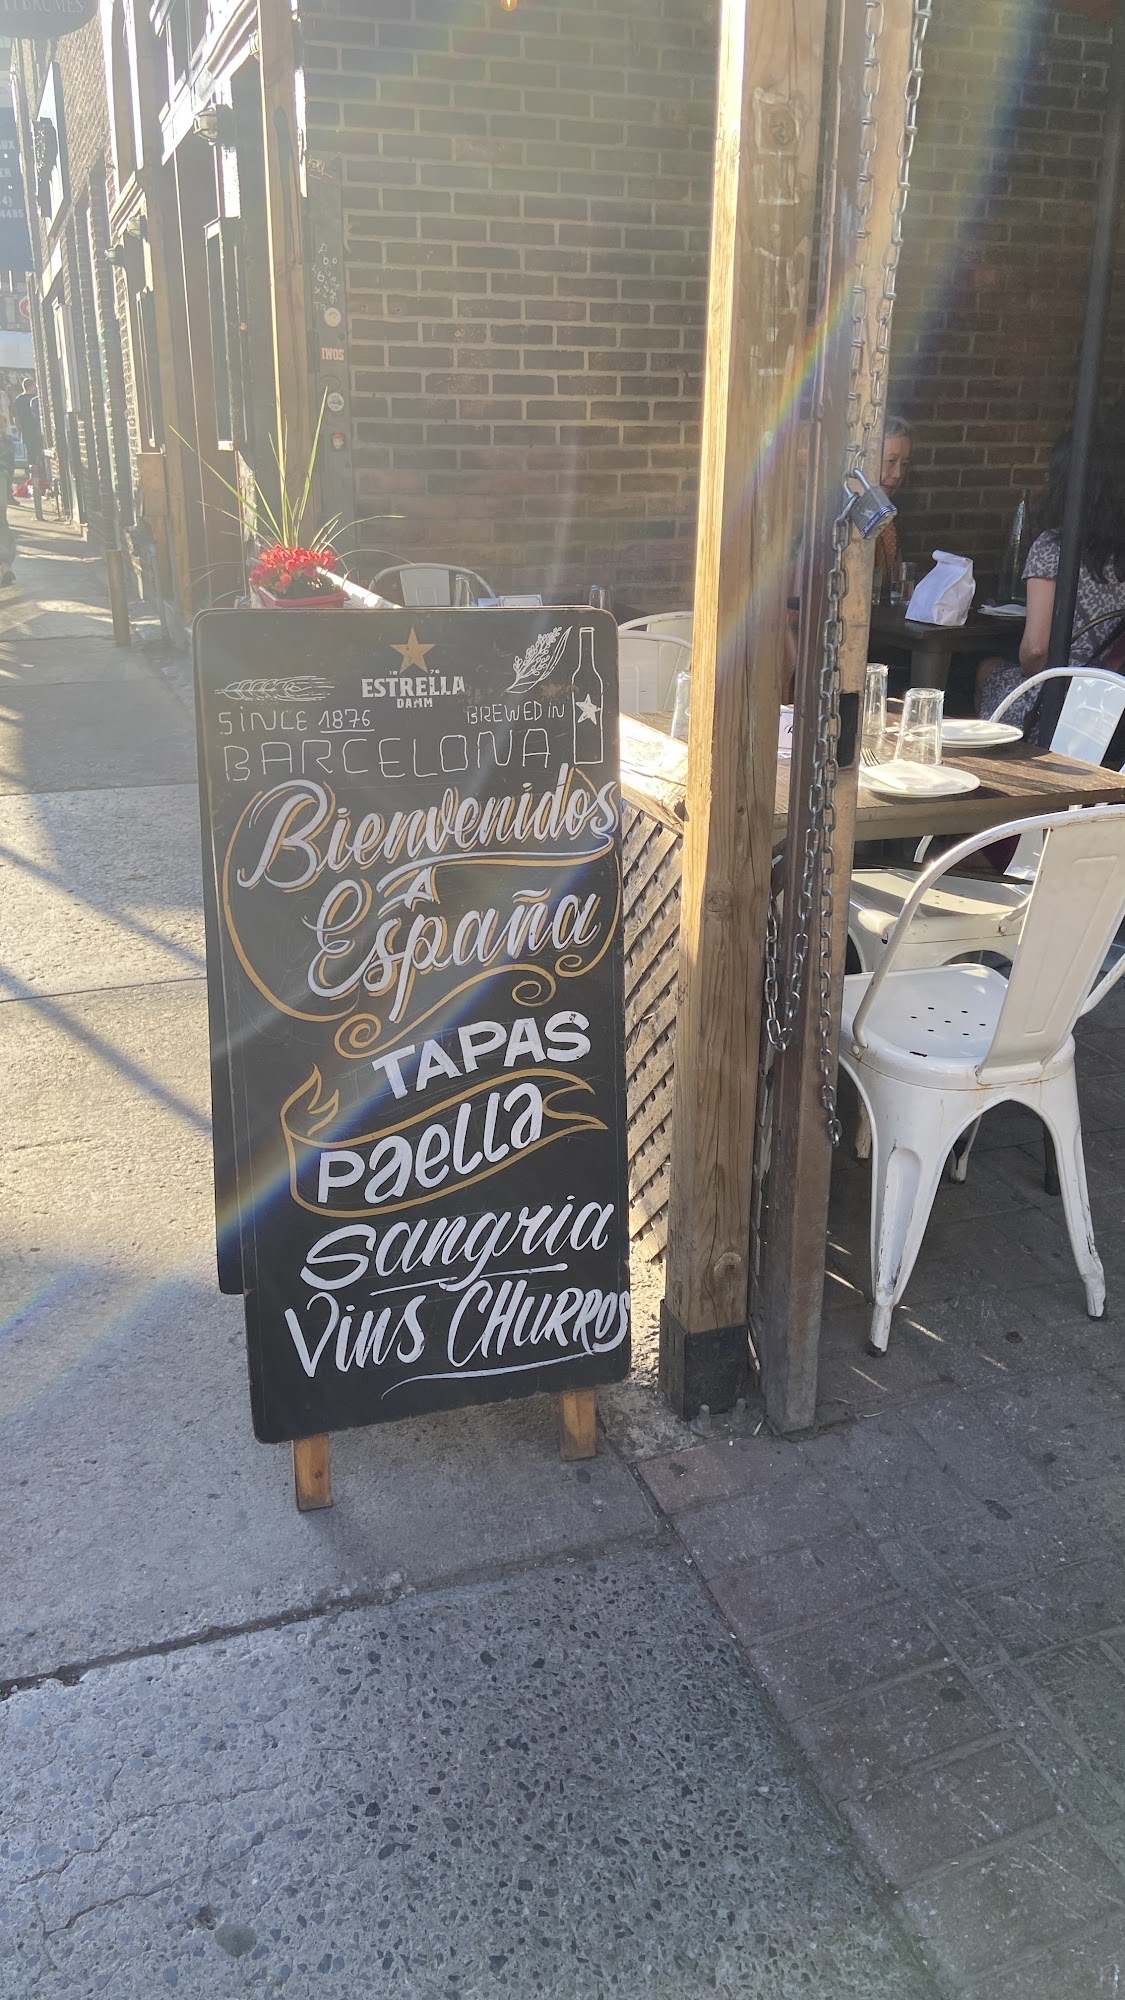 ESTRELLA
DAMM
SINCE 1876
BREWED IN
BARCELONA
Bienvenidos
A
España
TAPAS
Paella
Sangria
Vins CHURROS
TWOS